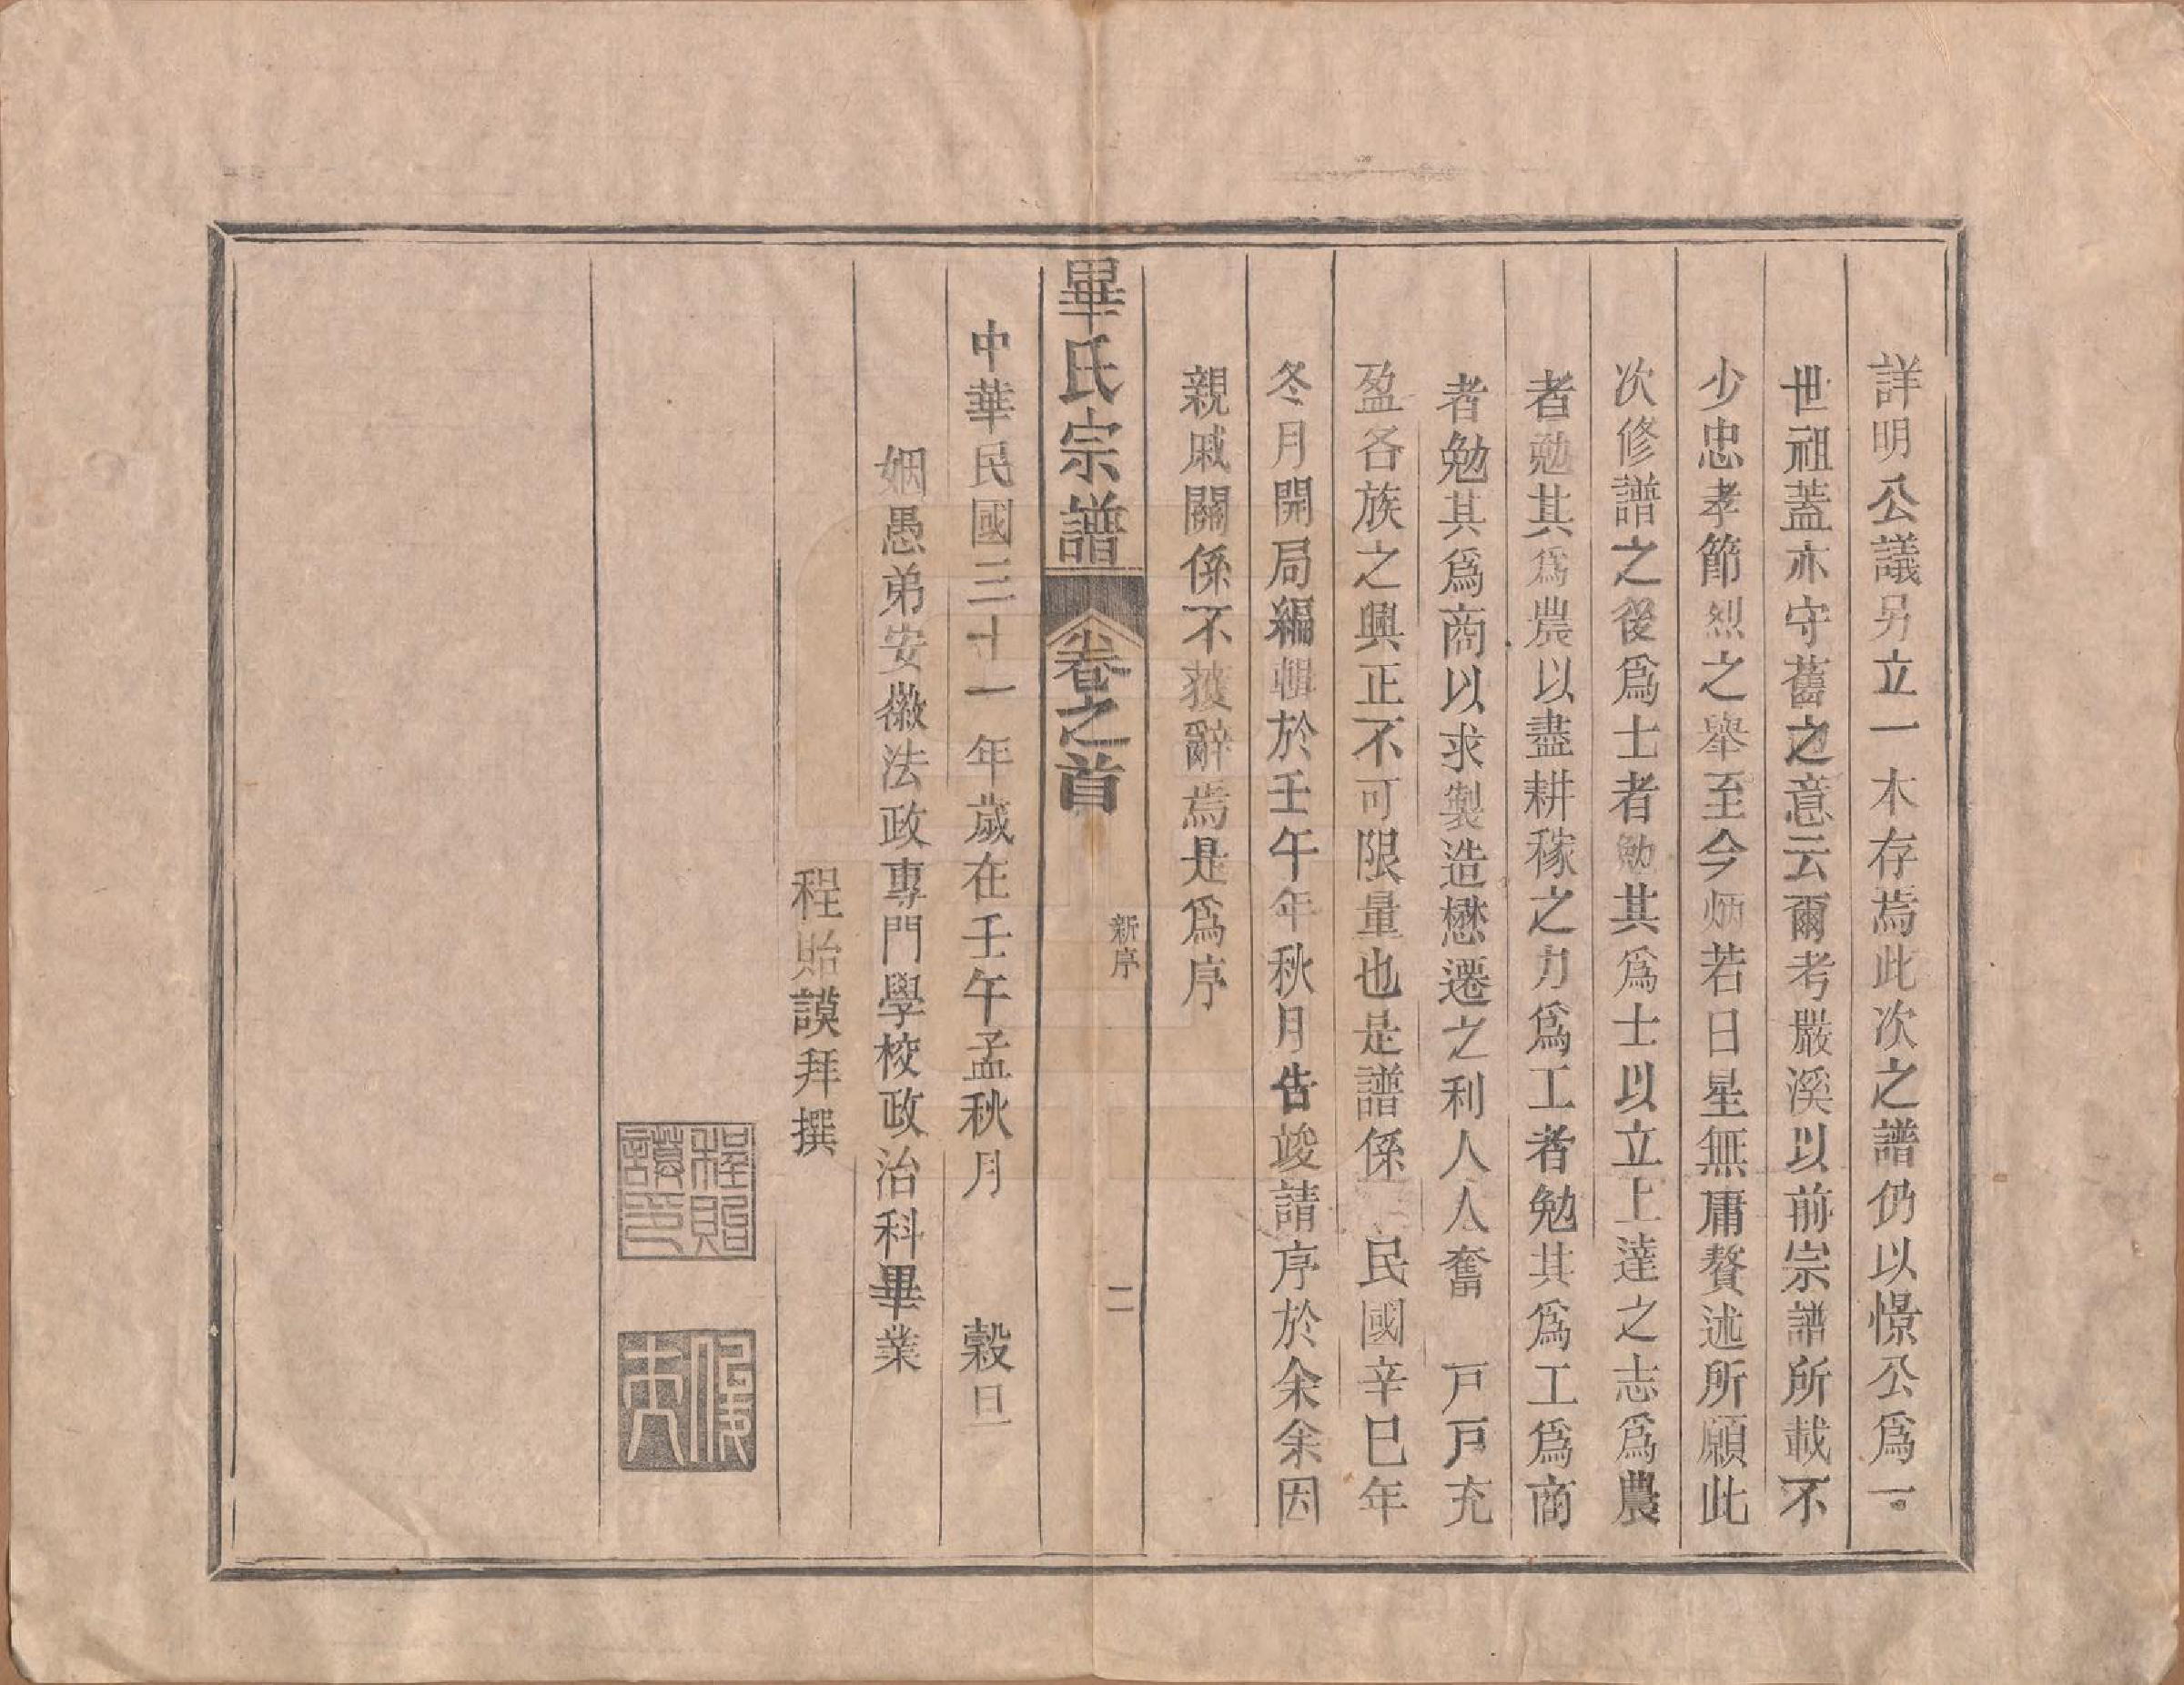 詳明公議另立一木存焉此次之譜仍以憬公爲一
世祖蓋亦守舊之意云爾考嚴溪以前宗譜所載不
少忠孝節烈之舉至今炳若日星無庸贅述所願此
次修譜之後爲士者勉其爲士以立上達之志爲農
者勉其爲農以盡耕稼之力爲工者勉其爲工爲商
者勉其爲商以求製造懋遷之利人人奮 戸戸充
盈各族之興正不可限量也是譜係 民國辛巳年
冬月開局編輯於壬午年秋月告竣請序於余余因
親戚關係不獲辭焉是爲序
畢氏宗譜 卷之首 新序 二
中華民國三十一年歲在壬午孟秋月 穀旦
姻愚弟安徽法政專門學校政治科畢業
程貽謨拜撰
程貽謨印